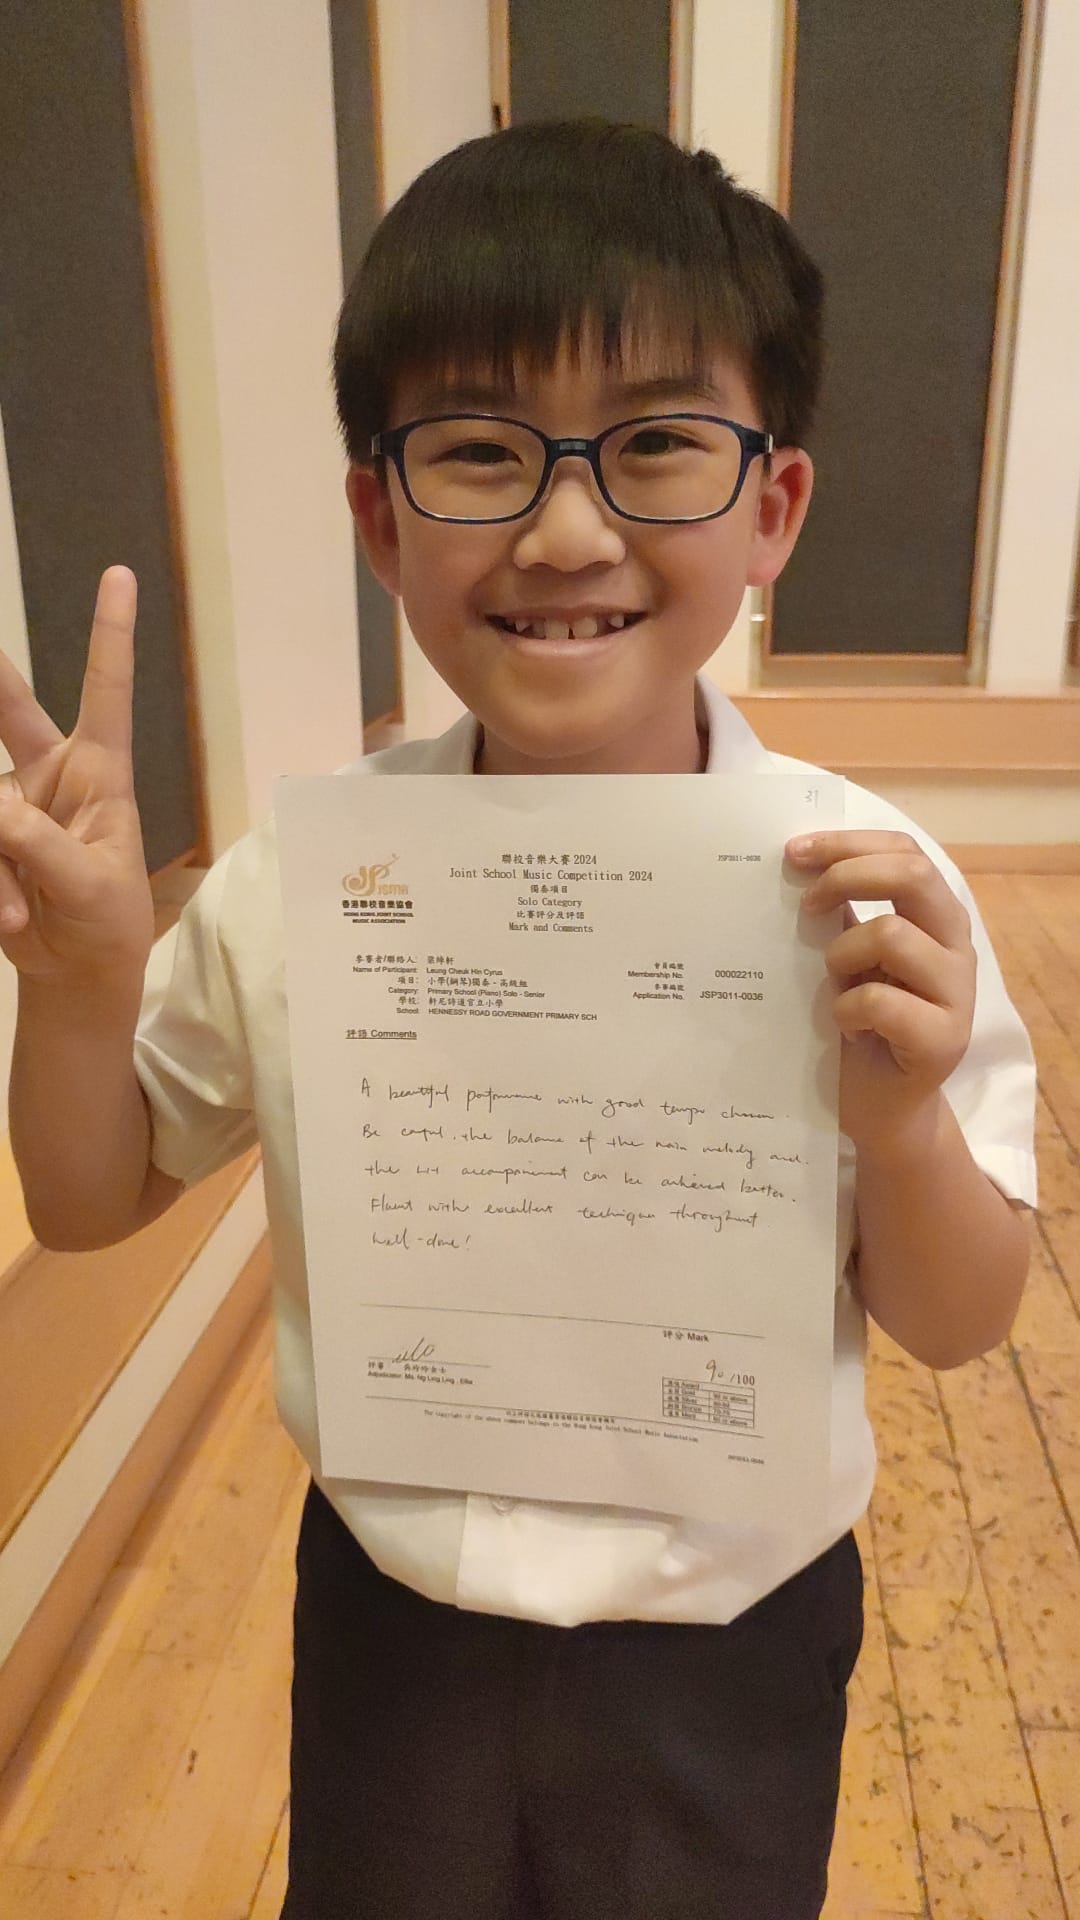 31
JSP3011-0036
聯校音樂大賽 2024
Joint School Music Competition 2024
獨奏項目
Solo Category
比賽評分及評語
Mark and Comments
JSMA
香港聯校音樂協會
HONG KONG JOINT SCHOOL
MUSIC ASSOCIATION
參賽者/聯絡人: 梁焯軒
Name of Participant: Leung Cheuk Hin Cyrus
項目: 小學(鋼琴)獨奏 - 高級組
Category: Primary School (Piano) Solo - Senior
學校: 軒尼詩道官立小學
School: HENNESSY ROAD GOVERNMENT PRIMARY SCH
會員編號
Membership No. 000022110
參賽編號
Application No. JSP3011-0036
評語 Comments
A beautiful performance with good tempo chosen.
Be careful, the balance of the main melody and
the LH accompaniment can be achieved better.
Fluent with excellent technique throughout.
Well-done!
評分 Mark
90/100
評審 吳玲玲女士
Adjudicator: Ms. Ng Ling Ling, Ella
獎項 Award
金獎 Gold 90 or above
銀獎 Silver 80-89
銅獎 Bronze 70-79
優良 Merit 60 or above
The copyright of the above comment belongs to the Hong Kong Joint School Music Association
JSP3011-0036